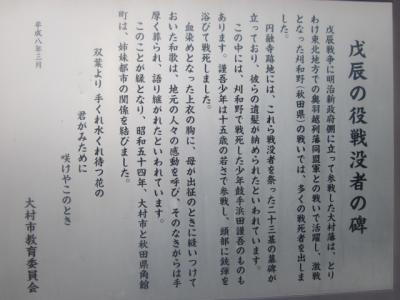 戊辰の役戦没者の碑
戊辰戦争に明治新政府側に立って参戦した大村藩は、とり
わけ東北地方での奥羽越列藩同盟軍との戦いで活躍し、激戦
となった刈和野(秋田県)の戦いでは、多くの戦死者を出しま
した。
円融寺跡地には、これら戦没者を祭った二十三基の墓碑が
立っており、彼らの遺髪が納められたといわれています。
この中には、刈和野で戦死した少年鼓手浜田謹吾のものも
あります。謹吾少年は十五歳の若さで参戦し、頭部に銃弾を
浴びて戦死しました。
血染めとなった上衣の胸に、母が出征のときに縫いつけて
おいた和歌は、地元の人々の感動を呼び、そのなきがらは手
厚く葬られ、語り継がれたといわれています。
このことが縁となり、昭和五十四年、大村市と秋田県角館
町は、姉妹都市の関係を結びました。
双葉より 手くれ水くれ待つ花の
君がみために
咲けやこのとき
大村市教育委員会
平成八年三月